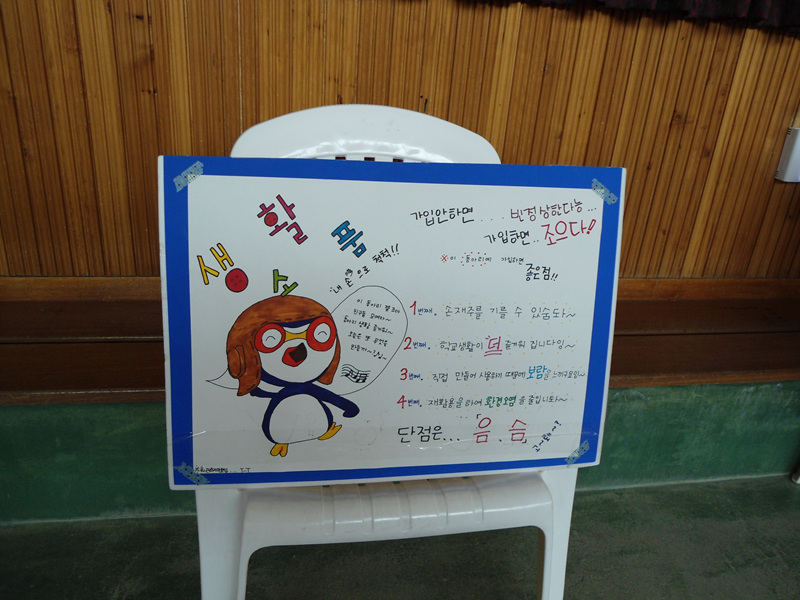 생활 소품
"내 손"으로 척척!!
가입안하면.... 빈정상한다능...
가입하면.. 조으다!
※이 동아리에 가입하면 좋은점!!
1번째. 손재주를 기를 수 있슴돠~
2번째. 학교생활이 더 즐거워 집니다잉~
3번째. 직접 만들어 사용하기 때문에 보람을 느끼구요잉~
4번째. 재활용을 하여 환경오염을 줄입니돠~
단점은... 음.슴